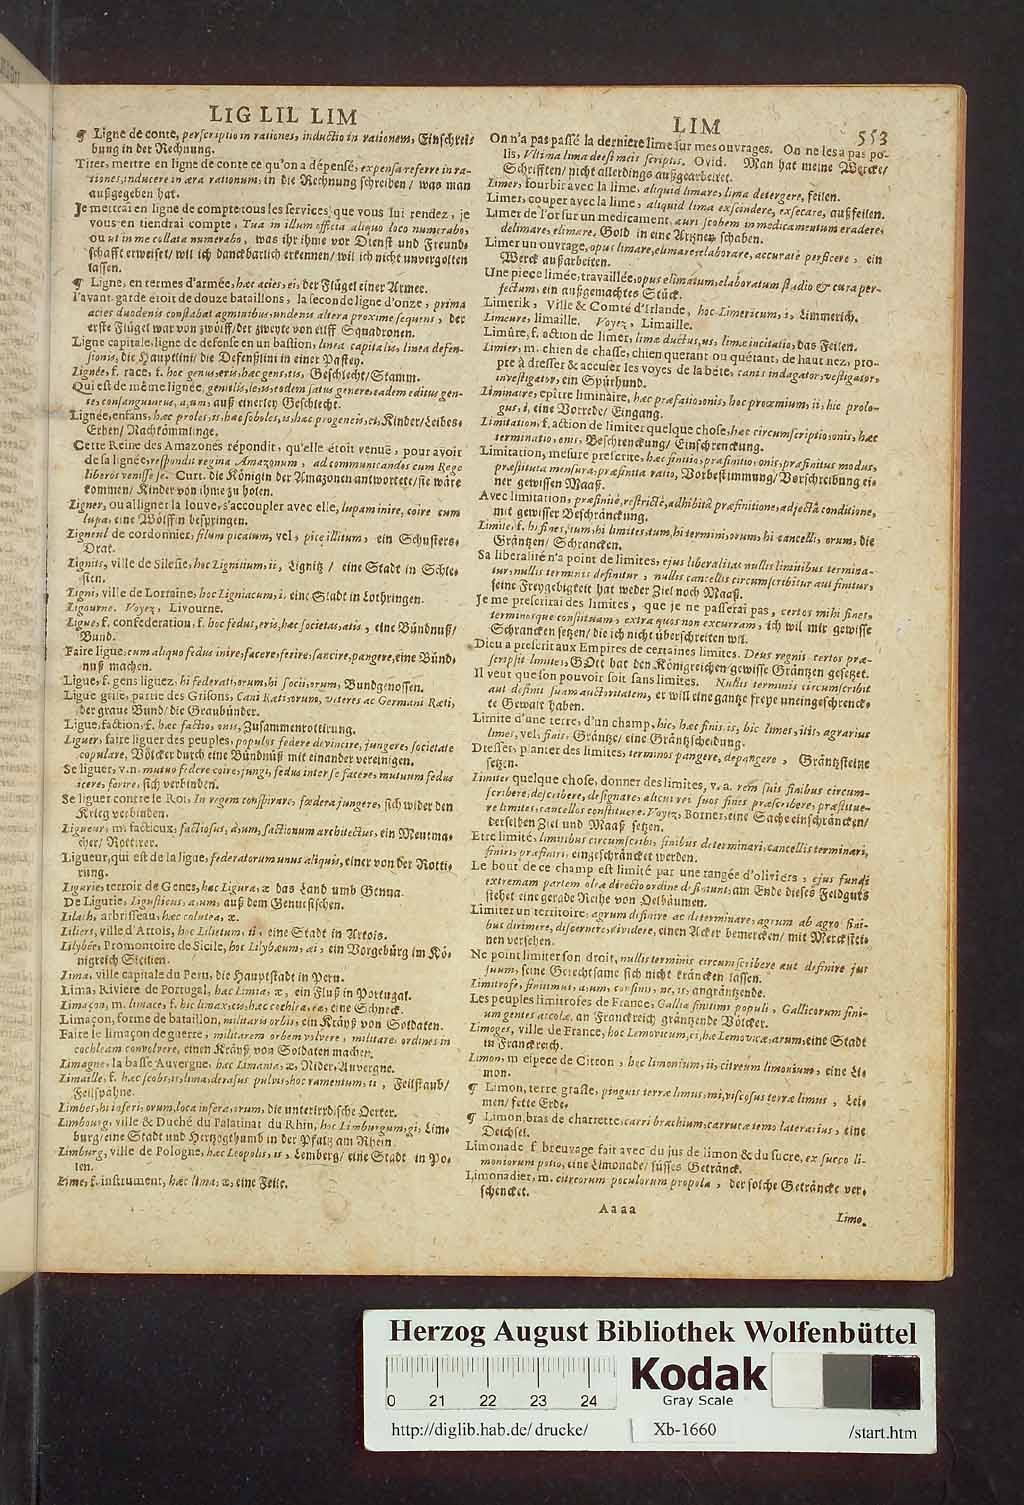 LIG LIL LIM
¶ Ligne de conte, perscriptio in rationes, inductio in rationem, Einschrei-
bung in der Rechnung.
Tirer, mettre en ligne de conte ce qu'on a dépensé, expensa referre in ra-
tiones, inducere in æra rationum, in die Rechnung schreiben/ was man
außgegeben hat.
Je mettrai en ligne de compte tous les services, que vous lui rendez, je
vous en tiendrai compte, Tua in illum officia aliquo loco numerabo,
ou ut in me collata numerabo, was ihr ihme vor Dienst und Freund-
schafft erweiset/ wil ich danckbarlich erkennen/ wil ich nicht unvergolten
lassen.
¶ Ligne, en termes d'armée, hæc acies, ei, der Flügel einer Armee.
l'avant-garde étoit de douze bataillons, la seconde ligne d'onze, prima
acies duodenis constabat agminibus, undenis altera proxime sequens, der
erste Flügel war von zwölff/ der zweyte von eilff Squadronen.
Ligne capitale, ligne de defense en un bastion, linea capitalis, linea defen-
sionis, die Hauptlini/ die Defenßlini in einer Pastey.
Lignée, f. race, f. hoc genus, eris, hæc gens, tis, Geschlecht/ Stamm.
Qui est de même lignée, gentilis, le, is, eodem satus genere, eadem editus gen-
te, consanguineus, a, um, auß einerley Geschlecht.
Lignée, enfans, hæc proles, is, hæc soboles, is, hæc progenies, ei, Kinder/ Leibes-
Erben/ Nachkömmlinge.
Cette Reine des Amazones répondit, qu'elle étoit venuë, pour avoir
de sa lignée, respondit regina Amazonum, ad communicandos cum Rege
liberos venisse se. Curt. die Königin der Amazonen antwortete/ sie wäre
kommen/ Kinder von ihme zu holen.
Ligner, ou alligner la louve, s'accoupler avec elle, lupam inire, coire cum
lupa, eine Wölffin bespringen.
Ligneul de cordonnier, filum picatum, vel, pice illitum, ein Schusters-
Drat.
Lignits, ville de Silesie, hoc Lignitium, ii, Lignitz/ eine Stadt in Schle-
sien.
Ligni, ville de Lorraine, hoc Ligniacum, i. eine Stadt in Lothringen.
Ligourne. Voyez, Livourne.
Ligue, f. confederation, f. hoc fedus, eris, hæc societas, atis, eine Bündnuß/
Bund.
Faire ligue, cum aliquo fedus inire, facere, ferire, sancire, pangere, eine Bünd-
nuß machen.
Ligue, f. gens liguez, hi federati, orum, hi socii, orum, Bundgenossen.
Ligue grise, partie des Grisons, Cani Rati, orum, veteres ac Germani Ræti,
der graue Bund/ die Graubünder.
Ligue, faction, f. hæc factio, onis, Zusammenrottirung.
Liguer, faire liguer des peuples, populos federe devincire, jungere, societate
copulare, Völcker durch eine Bündnüß mit einander vereinigen.
Se liguer, v. n. mutuo federe coire, jungi, fedus inter se facere, mutuum fedus
icere, ferire, sich verbinden.
Se liguer contre le Roi, In regem conspirare, fœdera jungere, sich wider den
König verbinden.
Ligueur, m. factieux, factiosus, a, um, factionum architectus, ein Meutma-
cher/ Rottirer.
Ligueur, qui est de la ligue, federatorum unus aliquis, einer von der Rotti-
rung.
Ligurie, terroir de Genes, hæc Ligura, æ das Land umb Genua.
De Ligurie, Ligusticus, a, um, auß dem Genuesischen.
Lilach, arbrisseau, hæc colutea, æ.
Liliers, ville d'Artois, hoc Lilietum, ii, eine Stadt in Artois.
Lilybée, Promontoire de Sicile, hoc Lilybæum, æi, ein Vorgebürg im Kö-
nigreich Sicilien.
Lima, ville capitale du Peru, die Hauptstadt in Peru.
Lima, Riviere de Portugal, hæc Limia, æ, ein Fluß in Portugal.
Limaçon, m. limace, f. hic limax, cis, hæc cochlea, ea, eine Schneck.
Limaçon, forme de bataillon, militaris orbis, ein Kräyß von Soldaten.
Faire le limaçon de guerre, militarem orbem volvere, militare, ordines in
cochleam convolvere, einen Kräyß von Soldaten machen.
Limagne, la basse Auvergne, hæc Limania, æ, Nider-Auvergne.
Limaille, f. hæc scobs, is, lima, derasus pulvis, hoc ramentum, ii, Feilstaub/
Feilspähne.
Limbes, hi inferi, orum, loca infera, orum, die unterirrdische Oerter.
Limbourg, ville & Duché du Palatinat du Rhin, hoc Limburgum, gi, Lim-
burg/ eine Stadt und Hertzogthumb in der Pfaltz am Rhein.
Limburg, ville de Pologne, hæc Leopolis, is, Lemberg/ eine Stadt in Po-
len.
Lime, f. instrument, hæc lima, æ, eine Feile.
LIM
553
On n'a pas passé la derniere lime sur mes ouvrages. On ne les a pas po-
lis, Ultima lima deest meis scriptis. Ovid. Man hat meine Wercke/
Schrifften/ nicht allerdings außgearbeitet.
Limer, fourbir avec la lime, aliquid limare, lima detergere, feilen.
Limer, couper avec la lime, aliquid lima exscindere, exsecare, außfeilen.
Limer de l'or sur un medicament, auri scobem in medicamentum eradere,
delimare, elimare, Gold in eine Artzney schaben.
Limer un ouvrage, opus limare, elimare, elaborare, accuratè perficere, ein
Werck außarbeiten.
Une piece limée, travaillée, opus elimatum, elaboratum studio & cura per-
fectum, ein außgemachtes Stück.
Limerik, Ville & Comté d'Irlande, hoc Limericum, i, Limmerich.
Limeure, limaille. Voyez, Limaille.
Limûre, f. action de limer, limæ ductus, us, limæ incitatio, das Feilen.
Limier, m. chien de chasse, chien querant ou quêtant, de haut nez, pro-
pre à dresser & acculer les voyes de la bête, canis indagator, vestigator,
investigator, ein Spürhund.
Liminaire, epître liminaire, hæc præfatio, onis, hoc proœmium, ii, hic prolo-
gus, i, eine Vorrede/ Eingang.
Limitation, f. action de limiter quelque chose, hæc circumscriptio, onis, hæc
terminatio, onis, Beschrenckung/ Einschrenckung.
Limitation, mesure prescrite, hæc finitio, præfinitio, onis, præfinitus modus,
præstituta mensura, præfinita ratio, Vorbestimmung/ Vorschreibung ei-
ner gewissen Maaß.
Avec limitation, præfinitè, restrictè, adhibità præfinitione, adjectà conditione,
mit gewisser Beschränckung.
Limite, f. hi fines, ium, hi limites, tum, hi termini, orum, hi cancelli, orum, die
Gräntzen/ Schrancken.
Sa liberalité n'a point de limites, ejus liberalitas nullis limitibus termina-
tur, nullis terminis definitur, nullis cancellis circumscribitur aut finitur,
seine Freygebigkeit hat weder Ziel noch Maaß.
Je me prescrirai des limites, que je ne passerai pas, certos mihi fines,
terminosque constituam, extra quos non excurram, ich wil mir gewisse
Schrancken setzen/ die ich nicht überschreiten wil.
Dieu a prescrit aux Empires de certaines limites. Deus regnis certos præ-
scripsit limites, GOtt hat den Königreichen gewisse Gräntzen gesetzet.
Il veut que son pouvoir soit sans limites. Nullis terminis circumscribit
aut definit suam auctoritatem, er will eine gantze freye uneingeschrenck-
te Gewalt haben.
Limite d'une terre, d'un champ, hic, hæc finis, is, hic limes, itis, agrarius
limes, vel, finis, Gräntze/ eine Gräntzscheidung.
Dresser, planter des limites, terminos pangere, depangere, Gräntzsteine
setzen.
Limiter quelque chose, donner des limites, v. a. rem suis finibus circum-
scribere, describere, designare, alicui rei suos fines præscribere, præstitue-
re limites, cancellos constituere. Voyez, Borner, eine Sache einschräncken/
derselben Ziel und Maaß setzen.
Etre limité, limitibus circumscribi, finibus determinari, cancellis terminari,
finiri, præfiniri, eingeschräncket werden.
Le bout de ce champ est limité par une rangée d'oliviers, ejus fundi
extremam partem oleæ directo ordine definiunt, am Ende dieses Feldguts
stehet eine gerade Reihe von Oelbäumen.
Limiter un territoire, agrum definire ac determinare, agrum ab agro fini-
bus dirimere, discernere, dividere, einen Acker bemercken/ mit Merckstei-
nen versehen.
Ne point limiter son droit, nullis terminis circumscribere aut definire jus
suum, seine Gerechtsame sich nicht kräncken lassen.
Limitrofe, finitimus, a, um, confinis, ne, is, angräntzende.
Les peuples limitrofes de France, Galliæ finitimi populi, Gallicorum fini-
um gentes accolæ, an Franckreich gräntzende Völcker.
Limoges, ville de France, hoc Lemovicum, ci, hæ Lemovicæ, arum, eine Stadt
in Franckreich.
Limon, m espece de Citron, hoc limonium, ii, citreum limonium, eine Li-
mon.
¶ Limon, terre grasse, pinguis terræ limus, mi, viscosus terræ limus, Lei-
men/ fette Erde.
¶ Limon, bras de charrette, carri brachium, carrucæ temo laterarius, eine
Deichsel.
Limonade f. breuvage fait avec du jus de limon & du sucre, ex succo li-
moniorum potio, eine Limonade/ süsses Getränck.
Limonadier, m. citreorum poculorum propola, der solche Getrãncke ver-
schencket.
Aaaa
Limo.
Herzog August Bibliothek Wolfenbüttel
Kodak
Gray Scale
0 21 22 23 24
http://diglib.hab.de/drucke/ Xb-1660 /start.htm